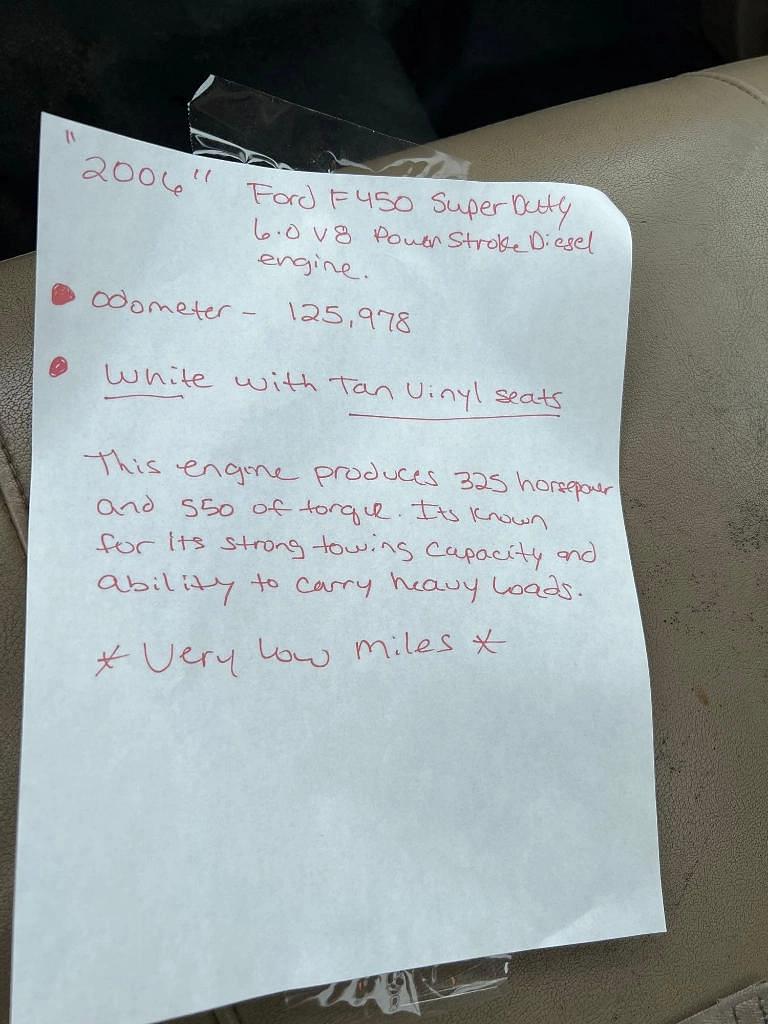 "2006" Ford F450 Super Duty
6.0 V8 Power Stroke Diesel
engine.
odometer - 125,978
White with Tan Vinyl seats
This engine produces 325 horsepower
and 550 of torque. Its known
for its strong towing capacity and
ability to carry heavy loads.
* Very low miles *